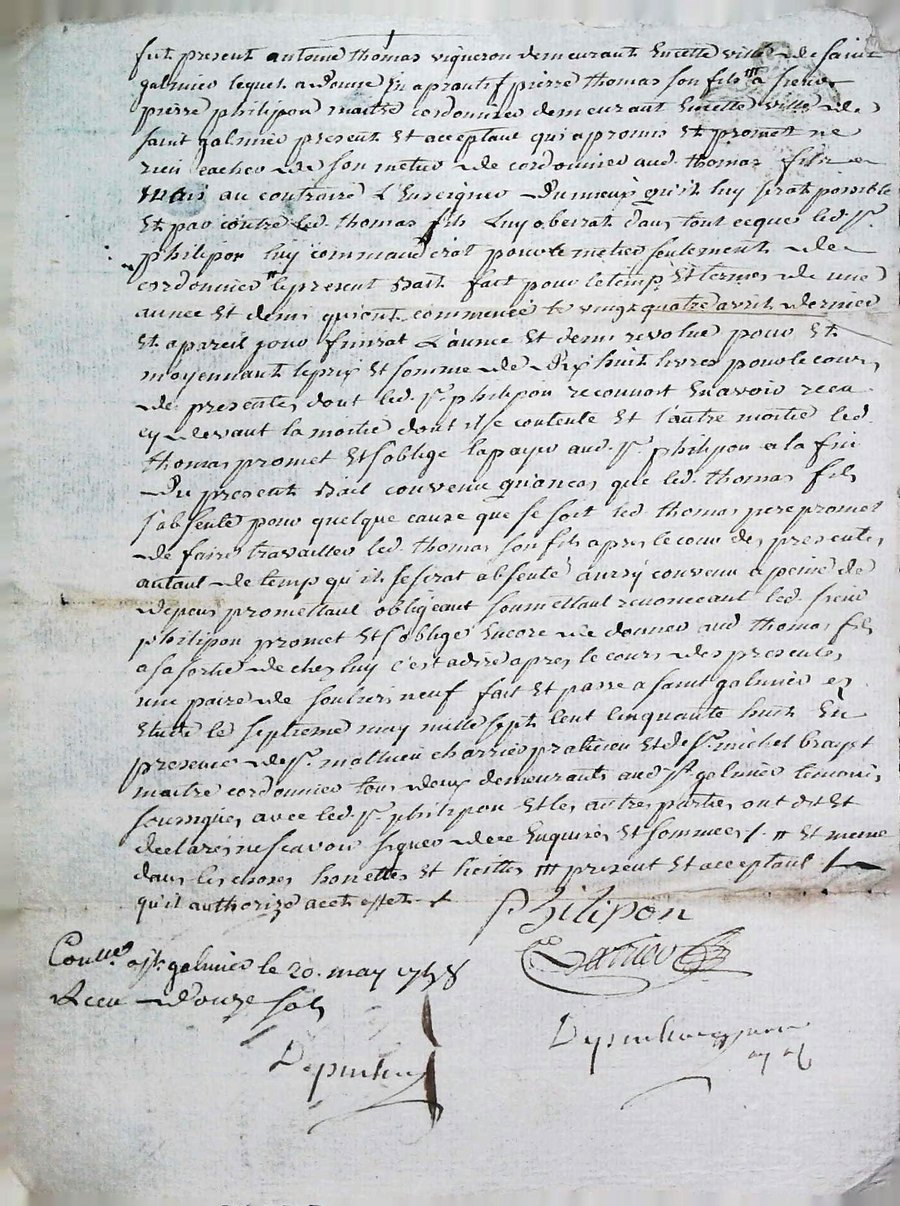 fut present antoine thomas vigneron demeurant en cette ville de saint
galmier lequel a donné en aprantif pierre thomas son fils /// a sieur
pierre philipon maitre cordonnier demeurant en cette ville de
saint galmier present et acceptant qui a promis et promet ne
rien cacher de son metier de cordonnier aud. thomas fils
mais au contraire l'enseigner du mieux qu'il luy serat possible
et par contre led. thomas fils luy obeirat dans tout ce que led. sr.
philipon luy commanderat pour le metier seulement de
cordonnier // le present bail fait pour le temp et termes de une
année et demi qui ont commencé le vingt quatre avril dernier
et a pareil jour finirat l'année et demi revolue pour et
moyennant le prix et somme de dix huit livres pour le cours
de presentes dont led. sr. philipon reconnoit en avoir receu
cy devant la moitié dont il se contente et l'autre moitié led.
thomas promet et s'oblige la payer aud. sr. philipon a la fin
du present bail convenu qu'en cas que led. thomas fils
s'absente pour quelque cause que se soit led. thomas pere promet
de faire travailler led. thomas son fils apres le cour des presentes
autant de temp qu'il se serat absenté aussy convenu a peine de
depens promettant obligeant soumettant renonceant led. sieur
philipon promet et s'oblige encore de donner aud thomas fils
a sa sortie de ches luy c'est a dire apres le cours des presentes
une paire de souliers neuf fait et passé a saint galmier es
etude le septieme may mille sept cent cinquante huit en
presence de sr. mathieu charrier praticien et de sr. michel
maitre cordonnier tous deux demeurants aud st. galmier temoins
soussignes avec led. sr. philipon et les autres parties ont dit et
declarés ne scavoir signer de ce enquires et sommées /. // et meme
dans les choses honettes et licittes /// present et acceptant
qu'il authorize a cets effets
Philipon
Charrier
Conllé. a st. galmier le 20. may 1758
Receu douze sols